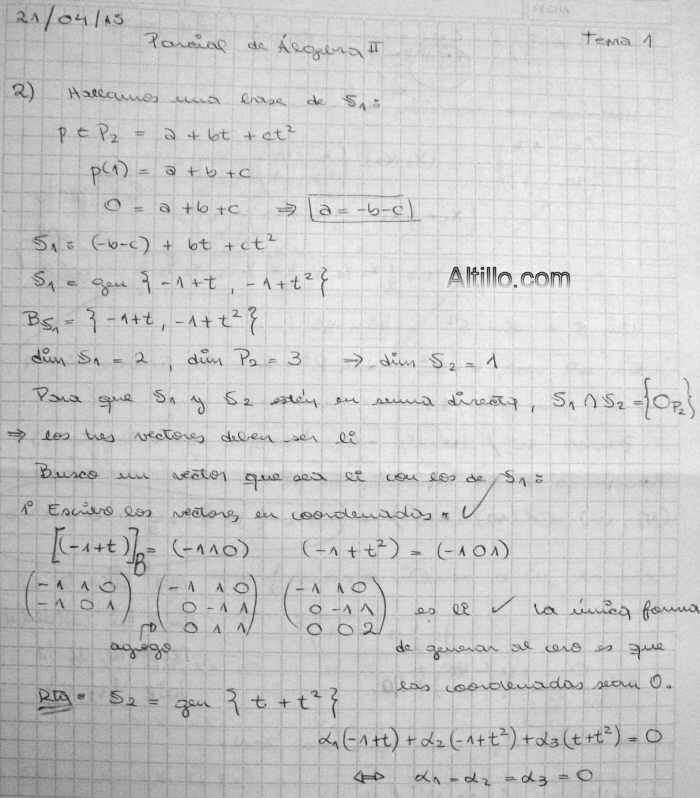 21/04/15
Parcial de Álgebra II
Tema 1
2) Hallamos una base de S₁:
p ∈ P₂ = a + bt + ct²
p(1) = a + b + c
0 = a + b + c ⇒ a = -b-c
S₁ = (-b-c) + bt + ct²
S₁ = gen { -1+t , -1+t² }
B_S₁ = { -1+t, -1+t² }
dim S₁ = 2 , dim P₂ = 3 → dim S₂ = 1
Para que S₁ y S₂ estén en suma directa, S₁ ∩ S₂ = {0_P₂}
⇒ los tres vectores deben ser li
Busco un vector que sea li con los de S₁:
1º Escribo los vectores en coordenadas: ✓
[(-1+t)]_B = (-1 1 0) (-1+t²) = (-1 0 1)
( -1 1 0 ) ( -1 1 0 ) ( -1 1 0 )
( -1 0 1 ) ( 0 -1 1 ) ( 0 -1 1 ) es li ✓ la única forma
( 0 1 1 ) ( 0 0 2 )
agrego
de generar al cero es que
las coordenadas sean 0.
Rta: S₂ = gen { t + t² }
α₁(-1+t) + α₂(-1+t²) + α₃(t+t²) = 0
⇔ α₁ = α₂ = α₃ = 0
Altillo.com